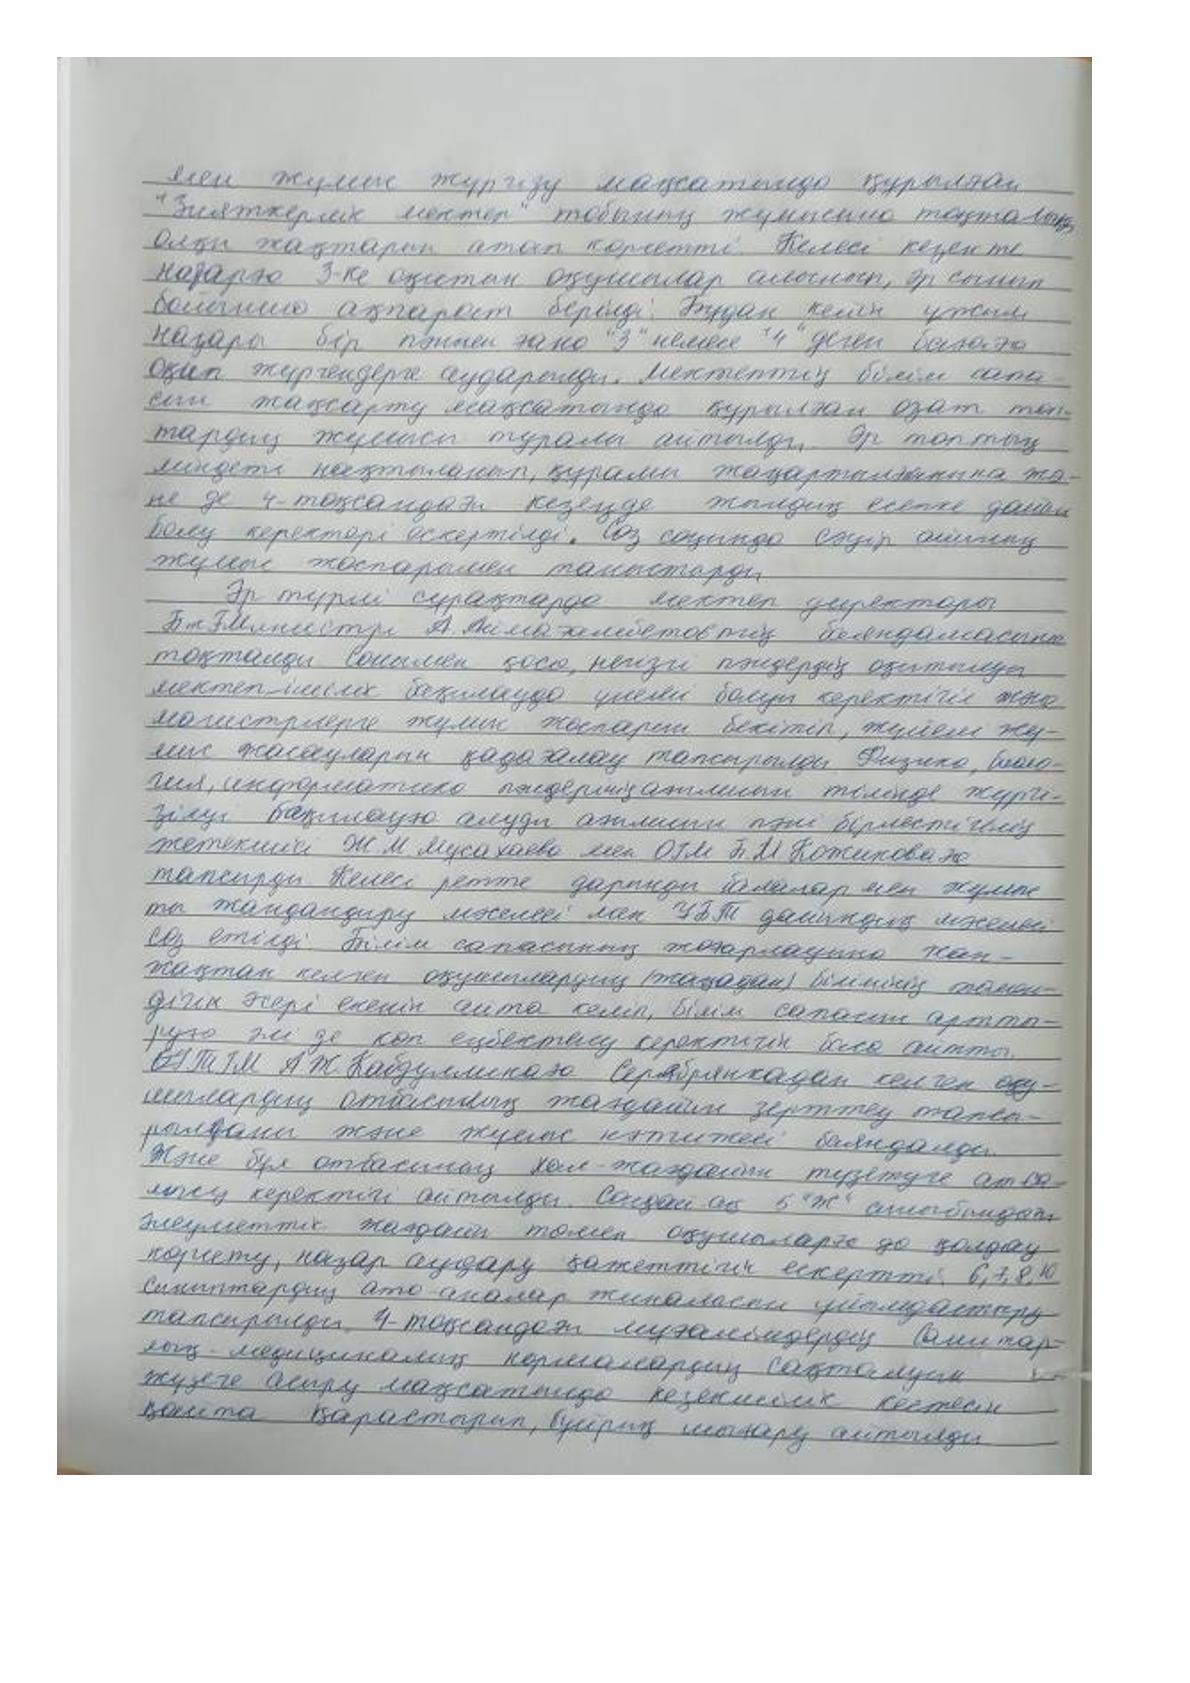 мен жұмыс жүргізу мақсатында құрылған
"Зияткерлік мектеп" тобының жұмысына тоқталып,
олқы жақтарын атап көрсетті. Келесі кезекте
назарға 3-ке оқитын оқушылар алынып, әр сынып
бойынша ақпарат берілді. Бұдан кейін ұжым
назары бір пәннен ғана "3" немесе "4" деген бағаға
оқып жүргендерге аударылды. Мектептің білім сапа-
сын жақсарту мақсатында құрылған озат топ-
тардың жұмысы туралы айтылды. Әр топтың
міндеті нақтыланып, құрамы жаңартылғанына жә-
не де 4-тоқсандағы кезеңде жылдық есепке дайын
болу керектігі ескертілді. Сөз соңында сәуір айының
жұмыс жоспарымен таныстырды
Әр түрлі сұрақтарда мектеп директоры
БжҒМинистрі А. Аймағамбетовтің баяндамасына
тоқталды Сонымен қоса, негізгі пәндердің оқытылуы
мектепішілік бақылауда үнемі болуы керектігін және
магистрлерге жұмыс жоспарын бекітіп, жүйелі жұ-
мыс жасауларын қадағалау тапсырылды Физика, биоло-
гия, информатика пәндерінің ағылшын тілінде жүргі-
зілуі бақылауға алуды ағылшын пәні бірлестігінің
жетекшісі Ж М Мусахаева мен ОІМ Б М Кожиковаға
тапсырды Келесі ретте дарынды балалар мен жұмыс
ты жандандыру мәселесі мен ҰБТ дайындық мәселесі
сөз етілді. Білім сапасының жоғарлауына жан-
жақтан келген оқушылардың (жаңадан) білімінің төмен-
дігін әсері екенін айта келіп, білім сапасын артты-
руға әлі де көп еңбектену керектігін баса айтты.
А Ж Кабдуллинаға Серебрянкадан келген оқу-
шылардың отбасының жағдайын зерттеу тапсы-
рылғаны және жұмыс нәтижесі баяндалды.
Және бұл отбасының хал-жағдайын түзетуге ат са-
лысу керектігі айтылды. Сондай-ақ 5 "Ж" сыныбындағы
әлеуметтік жағдайы төмен оқушыларға да қолдау
көрсету, назар аудару қажеттігін ескертті. 6,7,8,10
сыныптардың ата-аналар жиналысын ұйымдастыру
тапсырылды. 4-тоқсандағы мұғалімдердің санитар-
лық-медициналық нормалардың сақталуын
жүзеге асыру мақсатында кезекшілік кестесін
қайта қарастырып, бұйрық шығару айтылды